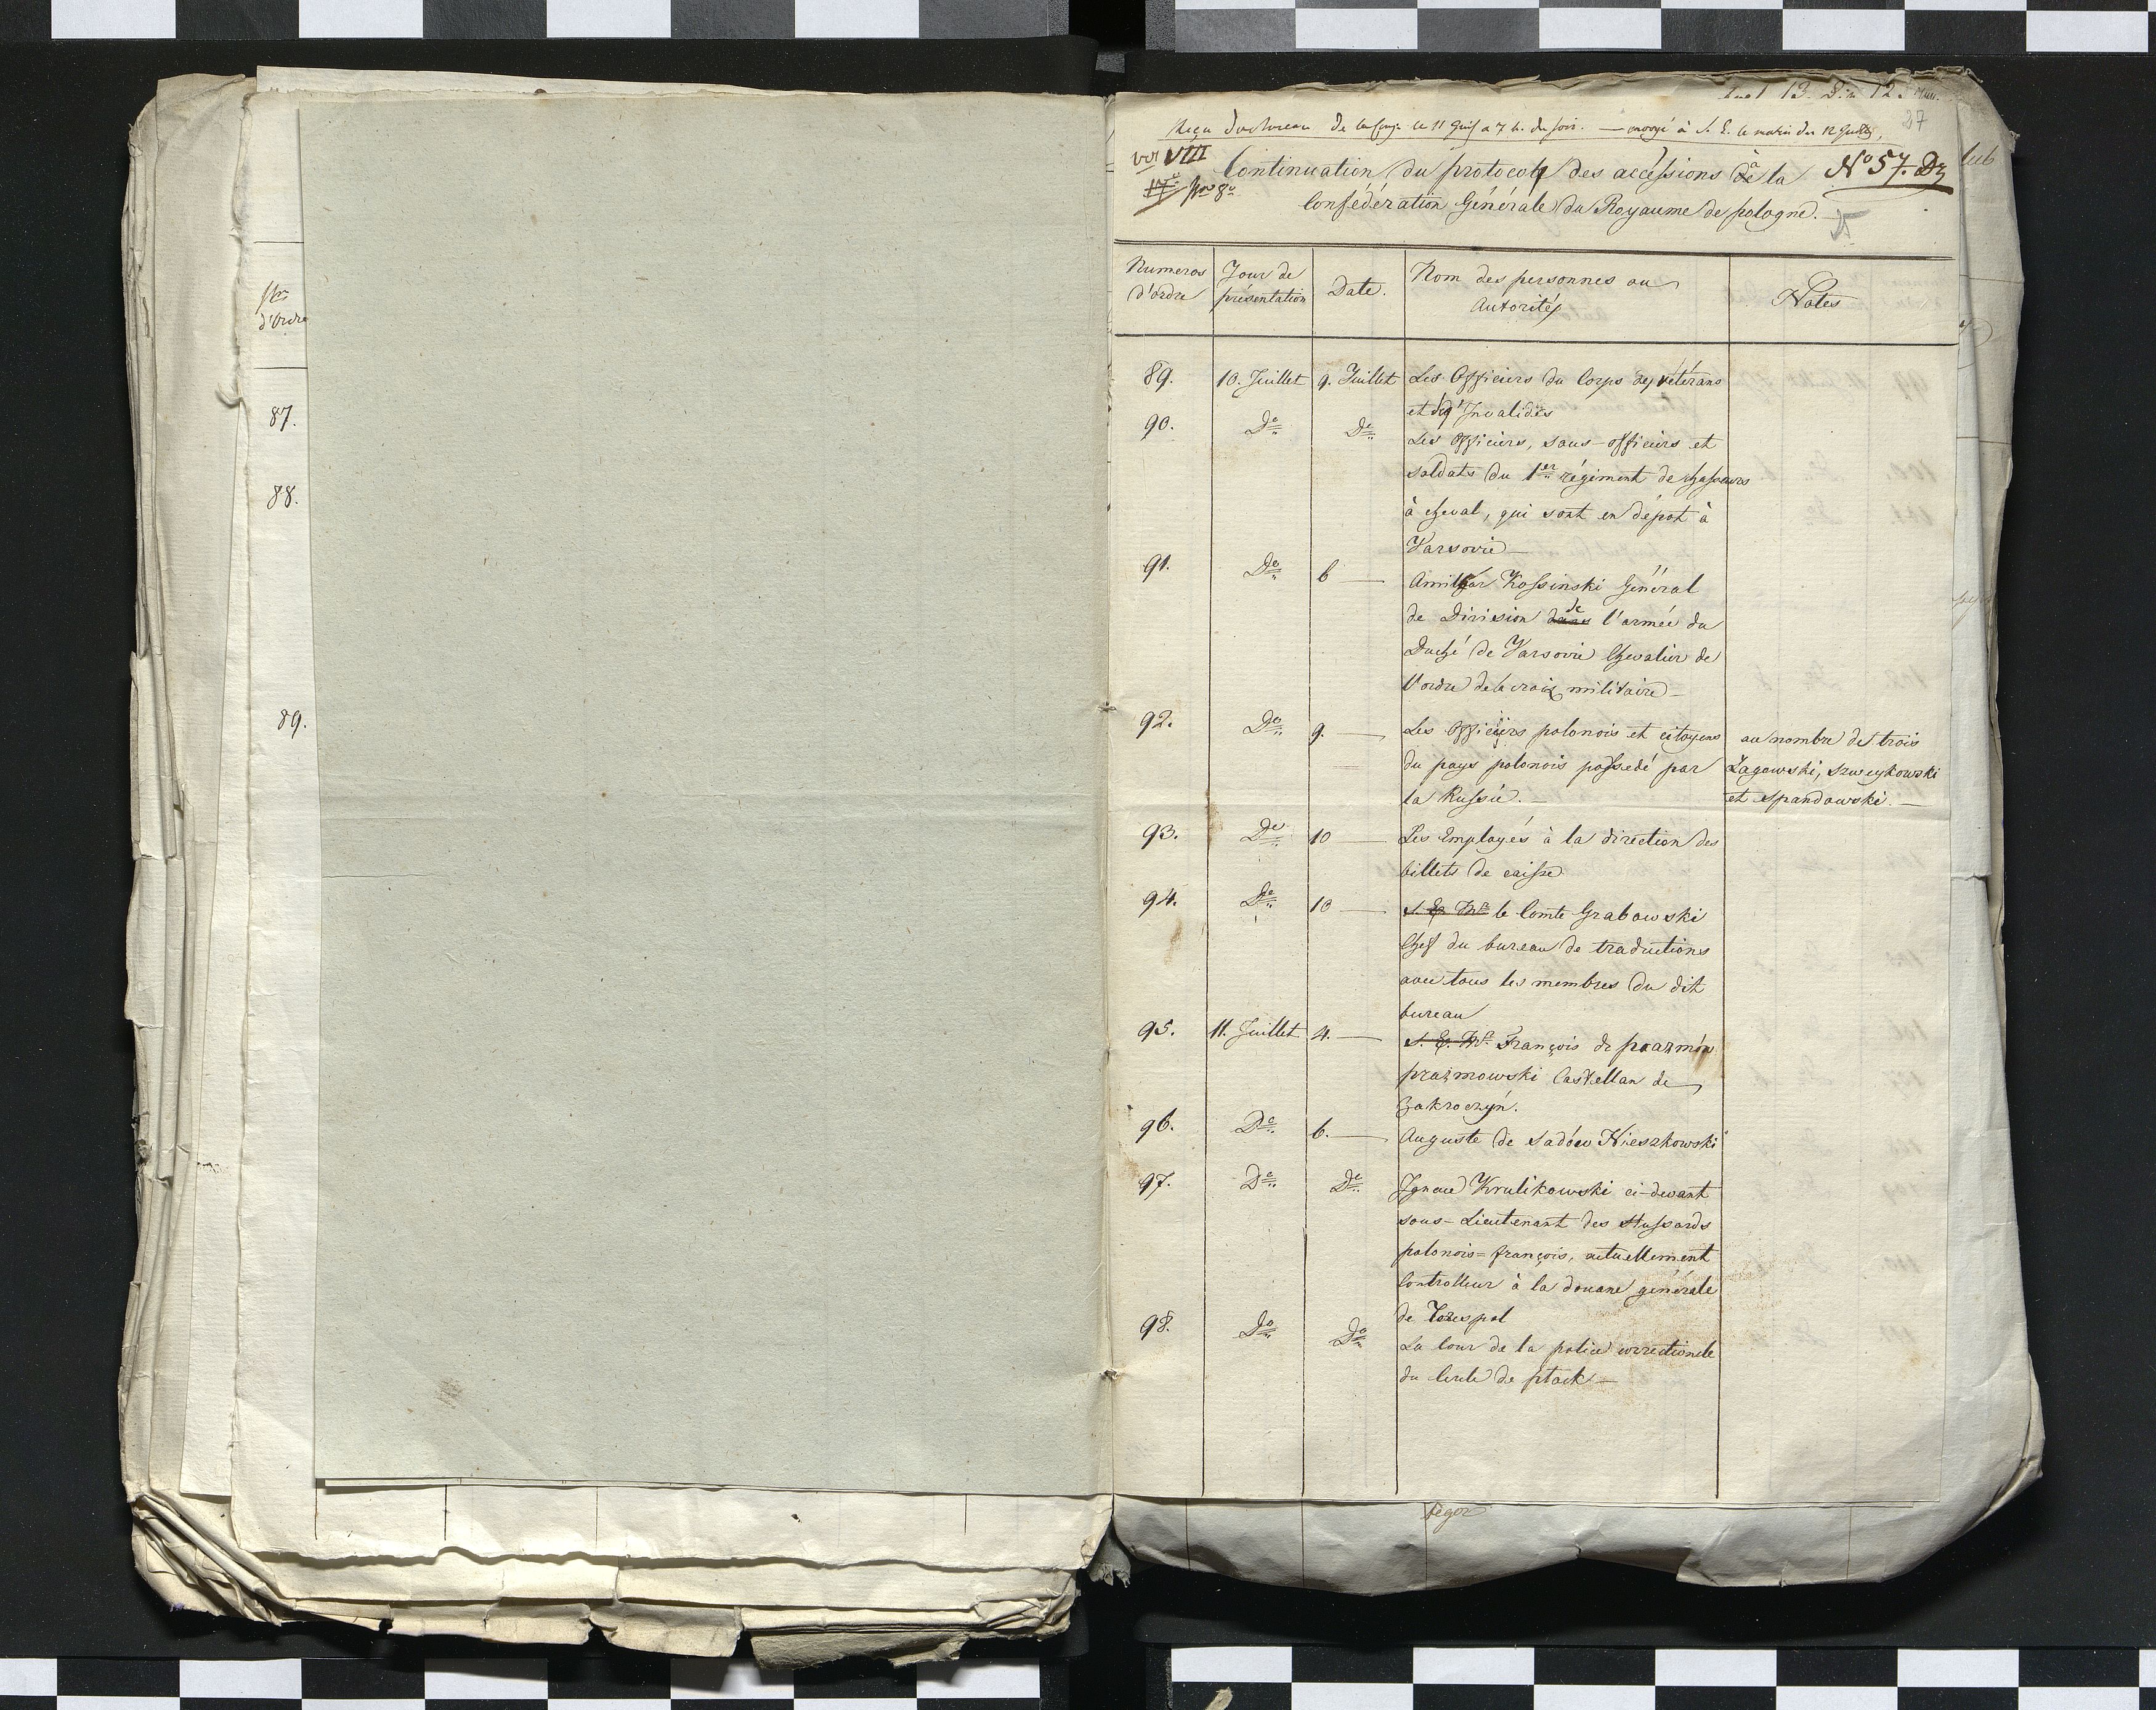 Nros
d'Ordre
87.
88.
89.
37
Reçu du bureau de la 11 a 7 h. du soir. — envoyé à S. E. le matin du 12
VIII
Nro 8o
Continuation du protocole des accessions à la No 57. D
Confédération Générale du Royaume de pologne.
Numeros d'ordre
Jour de présentation
Date.
Nom des personnes ou Autorités
Notes
89. 10. Juillet 9. Juillet Les Officiers du Corps des vétérans
et des Invalides
90. Do Do Les Officiers, sous-officiers et
soldats du 1er régiment de chasseurs
à cheval, qui sont en dépot à
Varsovie —
91. Do 6 — Amilkar Kossinski Général
de Division dans de l'armée du
Duché de Varsovie Chevalier de
l'ordre de la croix militaire —
92. Do 9. — Les Officiers polonois et citoyens au nombre de trois
du pays polonois possedé par Zagowski, Szweykowski
la Russie. — et Spandowski. —
93. Do 10 — Les Employés à la direction des
billets de caisse
94. Do 10 — S. E. Mr le Comte Grabowski
Chef du bureau de traductions
avec tous les membres du dit
bureau
95. 11. Juillet 4. — S. E. Mr François de prazmów
prazmowski Castellan de
Zakroczyń.
96. Do 6. — Auguste de Sadów Nieszkowski
97. Do Do Ignace Krulikowski ci-devant
sous-Lieutenant des Hussards
polonois=françois, actuellement
Controlleur à la douane générale
de Terespol
98. Do Do La Cour de la police correctionele
du Cercle de płock —